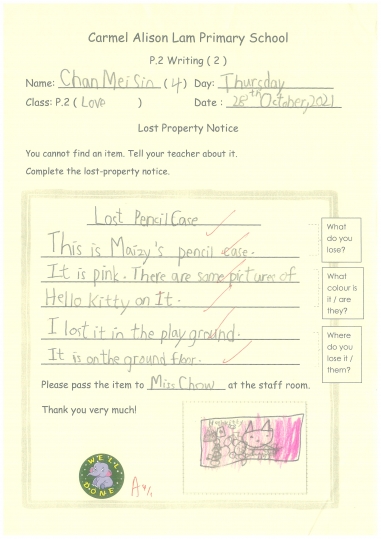 Carmel Alison Lam Primary School
P.2 Writing ( 2 )
Name: Chan Mei Sin ( 4 ) Day: Thursday
Class: P.2 ( Love ) Date : 28th October, 2021
Lost Property Notice
You cannot find an item. Tell your teacher about it.
Complete the lost-property notice.
Lost Pencil Case
This is Maizy's pencil case.
It is pink. There are some pictures of
Hello Kitty on It.
I lost it in the playground.
It is on the ground floor.
What do you lose?
What colour is it / are they?
Where do you lose it / them?
Please pass the item to Miss Chow at the staff room.
Thank you very much!
WELL DONE